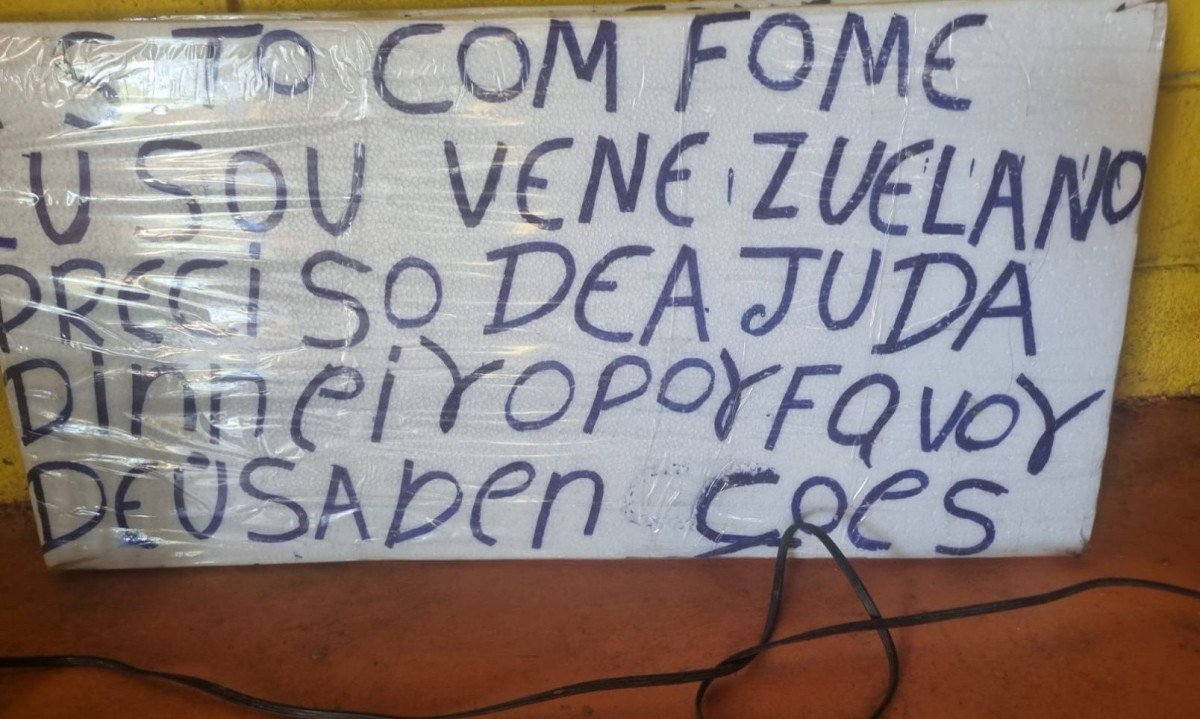 ESTO COM FOME
EU SOU VENEZUELANO
PRECISO DEAJUDA
DinheiroporFavor
DEUSAbençoes